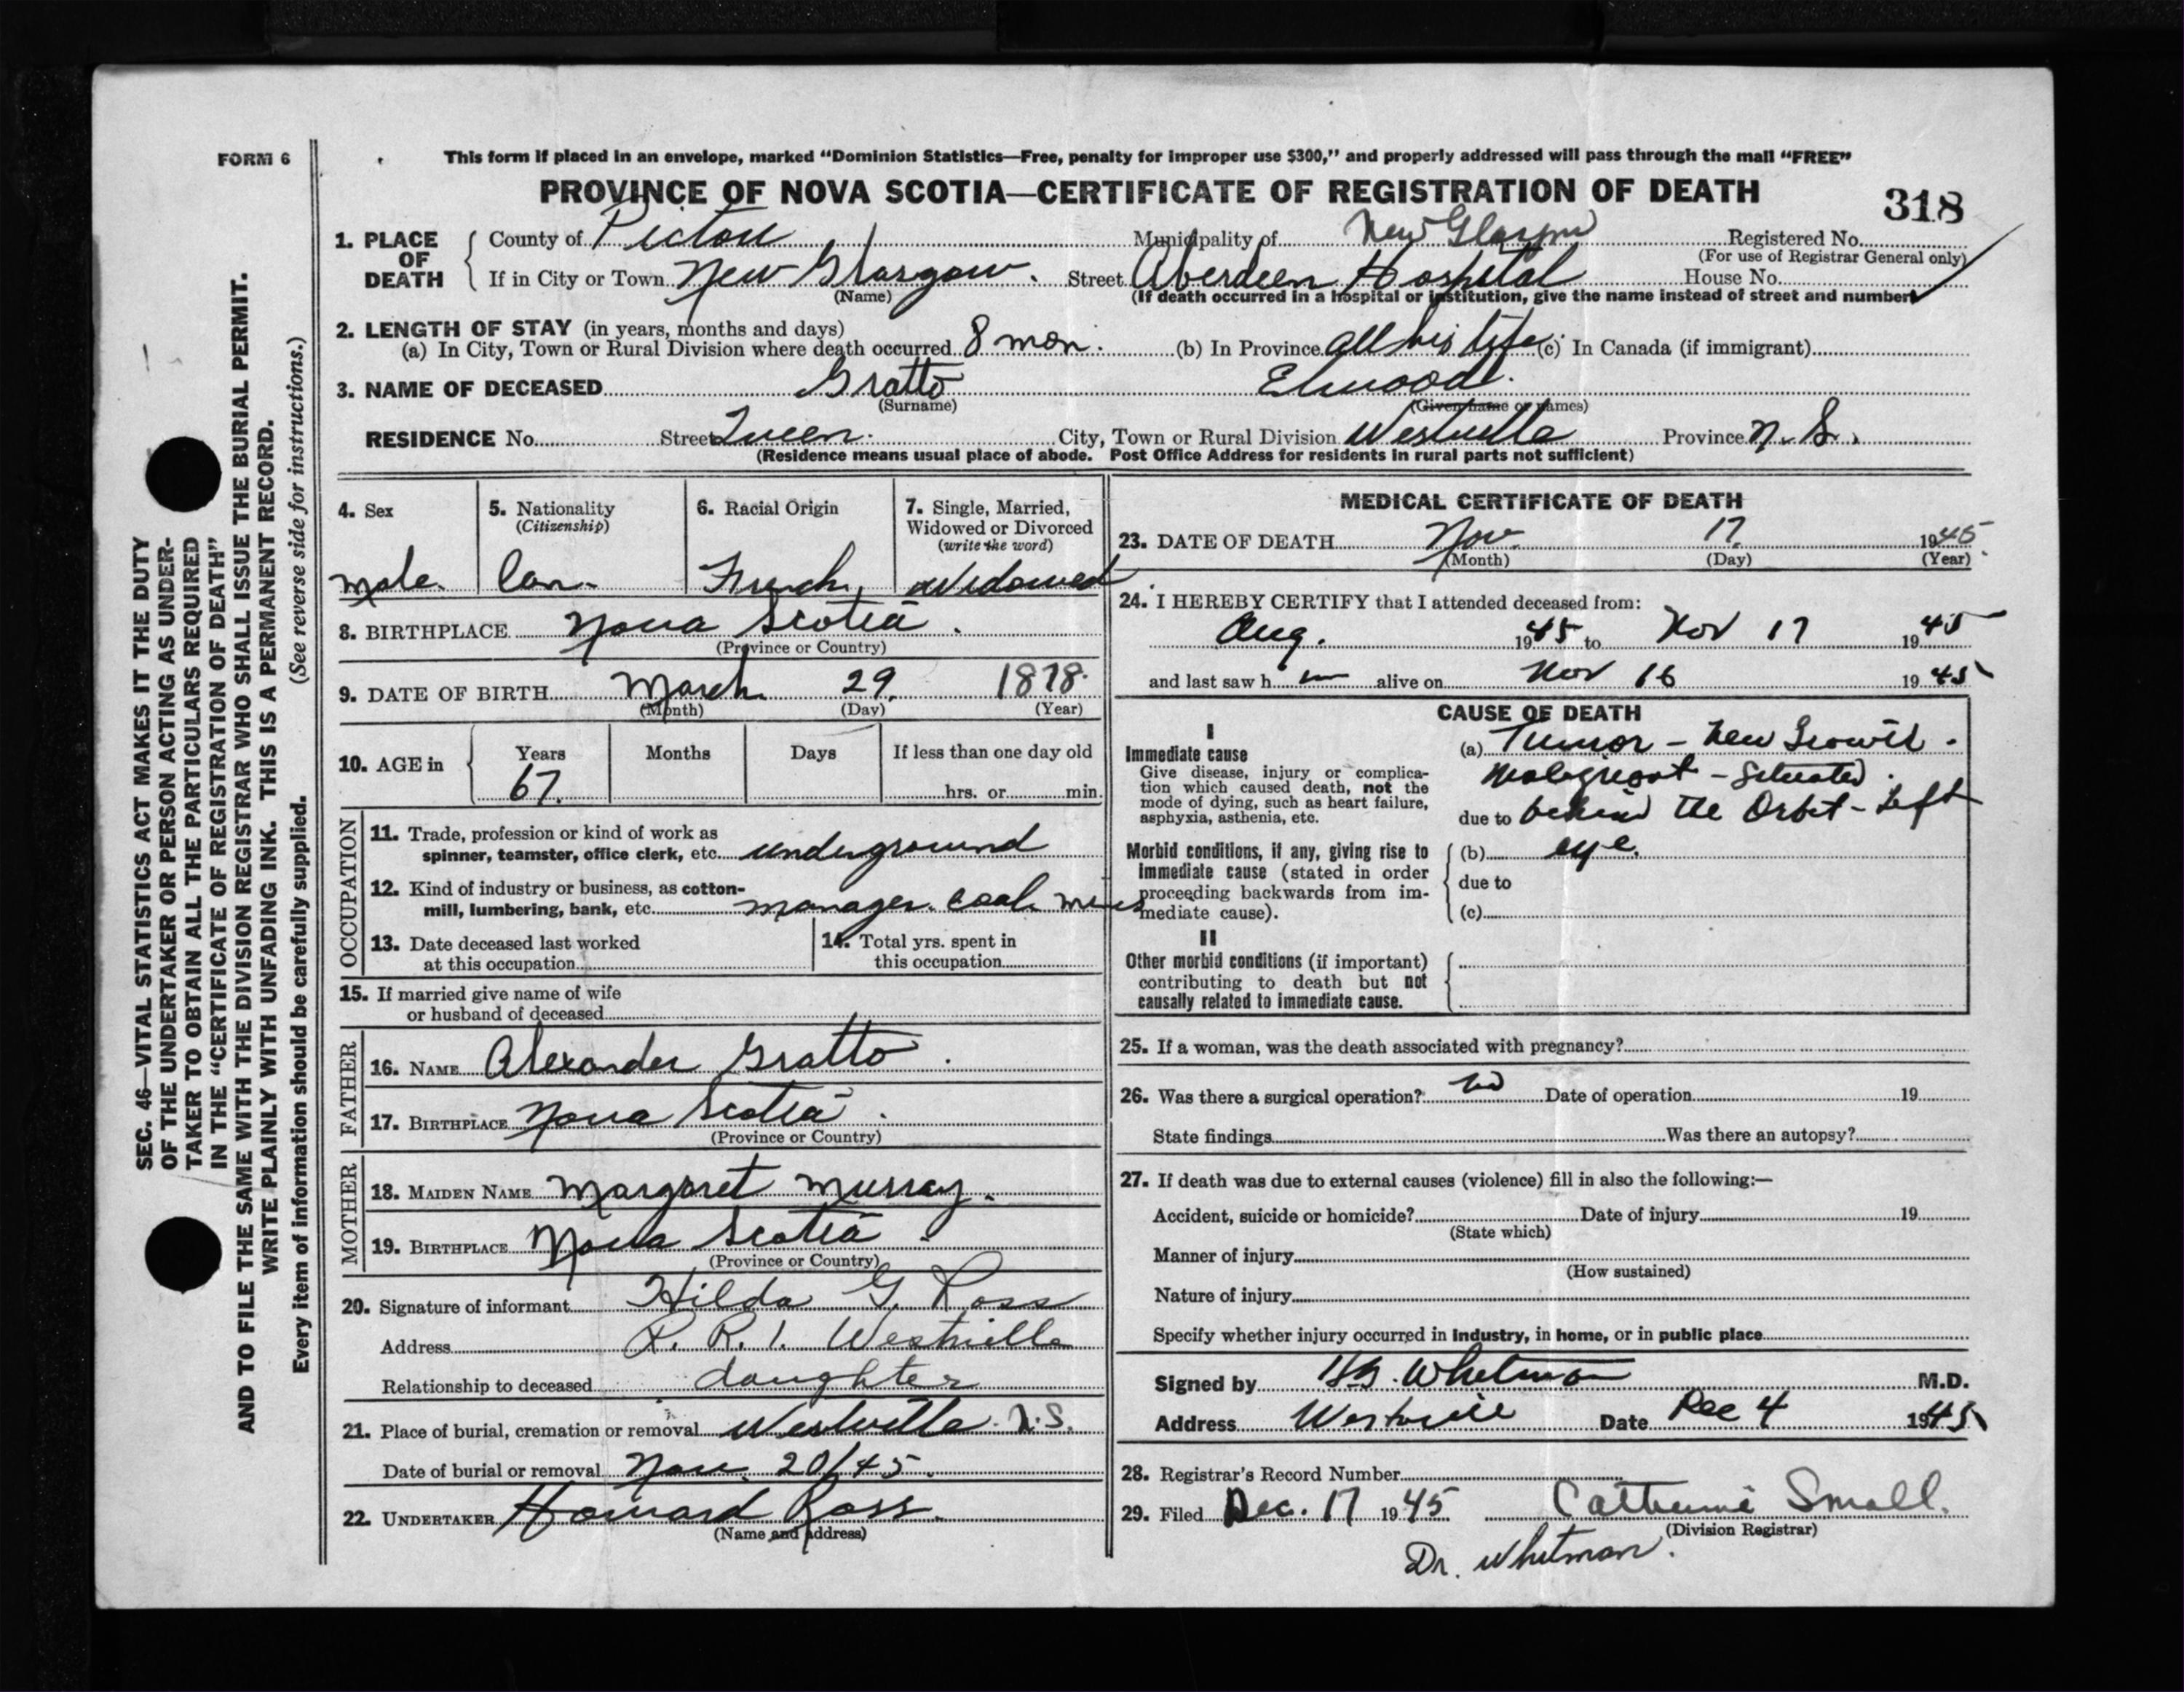 FORM 6
This form if placed in an envelope, marked “Dominion Statistics—Free, penalty for improper use $300,” and properly addressed will pass through the mail “FREE”
PROVINCE OF NOVA SCOTIA—CERTIFICATE OF REGISTRATION OF DEATH
318
1. PLACE OF DEATH
County of Pictou Municipality of New Glasgow Registered No.
(For use of Registrar General only)
If in City or Town New Glasgow. Street Aberdeen Hospital House No.
(Name) (If death occurred in a hospital or institution, give the name instead of street and number)
2. LENGTH OF STAY (in years, months and days)
(a) In City, Town or Rural Division where death occurred 8 mon. (b) In Province all his life (c) In Canada (if immigrant)
3. NAME OF DECEASED Gratto Elwood.
(Surname) (Given name or names)
RESIDENCE No. Street Queen. City, Town or Rural Division Westville Province N. S.
(Residence means usual place of abode. Post Office Address for residents in rural parts not sufficient)
4. Sex
male.
5. Nationality
(Citizenship)
Can.
6. Racial Origin
French
7. Single, Married,
Widowed or Divorced
(write the word)
Widowed
8. BIRTHPLACE Nova Scotia.
(Province or Country)
9. DATE OF BIRTH March 29. 1878.
(Month) (Day) (Year)
10. AGE in
Years Months Days If less than one day old
67. hrs. or min.
OCCUPATION
11. Trade, profession or kind of work as
spinner, teamster, office clerk, etc. underground
12. Kind of industry or business, as cotton-
mill, lumbering, bank, etc. manager. coal mines
13. Date deceased last worked
at this occupation
14. Total yrs. spent in
this occupation
15. If married give name of wife
or husband of deceased
FATHER
16. NAME Alexander Gratto.
17. BIRTHPLACE Nova Scotia.
(Province or Country)
MOTHER
18. MAIDEN NAME Margaret Murray.
19. BIRTHPLACE Nova Scotia.
(Province or Country)
20. Signature of informant Hilda G. Ross
Address R. R. 1. Westville
Relationship to deceased daughter
21. Place of burial, cremation or removal Westville. N.S.
Date of burial or removal Nov. 20/45.
22. UNDERTAKER Howard Ross.
(Name and address)
MEDICAL CERTIFICATE OF DEATH
23. DATE OF DEATH Nov. 17. 1945.
(Month) (Day) (Year)
24. I HEREBY CERTIFY that I attended deceased from:
Aug. 1945 to Nov 17 1945
and last saw h im alive on Nov 16 1945
CAUSE OF DEATH
I
Immediate cause
Give disease, injury or complica-
tion which caused death, not the
mode of dying, such as heart failure,
asphyxia, asthenia, etc.
(a) Tumor - New Growth.
Malignant - Situated
due to behind the Orbit - Left
Morbid conditions, if any, giving rise to
immediate cause (stated in order
proceeding backwards from im-
mediate cause).
(b) eye.
due to
(c)
II
Other morbid conditions (if important)
contributing to death but not
causally related to immediate cause.
25. If a woman, was the death associated with pregnancy?
26. Was there a surgical operation? No Date of operation 19
State findings Was there an autopsy?
27. If death was due to external causes (violence) fill in also the following:—
Accident, suicide or homicide? Date of injury 19
(State which)
Manner of injury
(How sustained)
Nature of injury
Specify whether injury occurred in industry, in home, or in public place
Signed by Whitman M.D.
Address Westville Date Dec 4 1945
28. Registrar's Record Number
29. Filed Dec. 17 1945 Catherine Small.
(Division Registrar)
Dr. Whitman.
SEC. 46—VITAL STATISTICS ACT MAKES IT THE DUTY
OF THE UNDERTAKER OR PERSON ACTING AS UNDER-
TAKER TO OBTAIN ALL THE PARTICULARS REQUIRED
IN THE “CERTIFICATE OF REGISTRATION OF DEATH”
AND TO FILE THE SAME WITH THE DIVISION REGISTRAR WHO SHALL ISSUE THE BURIAL PERMIT.
WRITE PLAINLY WITH UNFADING INK. THIS IS A PERMANENT RECORD.
Every item of information should be carefully supplied. (See reverse side for instructions.)